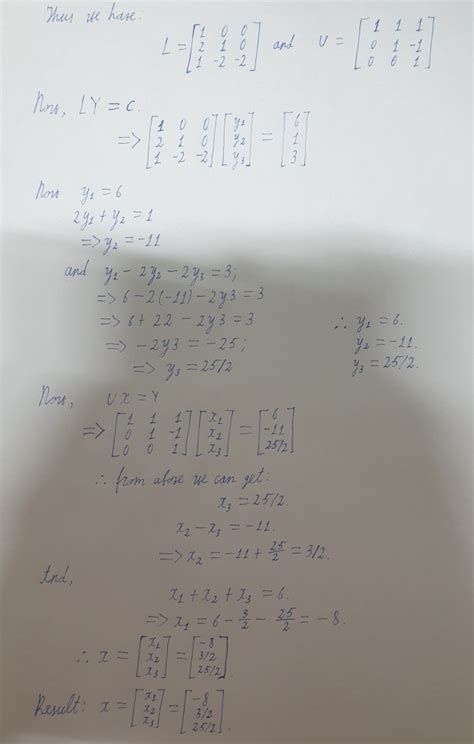 Thus we have:
L = [1 0 0; 2 1 0; 1 -2 -2] and U = [1 1 1; 0 1 -1; 0 0 1]
Now, LY = C.
=> [1 0 0; 2 1 0; 1 -2 -2] [y1; y2; y3] = [6; 1; 3]
Now y1 = 6
2y1 + y2 = 1
=> y2 = -11
and y1 - 2y2 - 2y3 = 3;
=> 6 - 2(-11) - 2y3 = 3
=> 6 + 22 - 2y3 = 3 ∴ y1 = 6.
=> -2y3 = -25; y2 = -11.
=> y3 = 25/2 y3 = 25/2
Now, UX = Y
=> [1 1 1; 0 1 -1; 0 0 1] [x1; x2; x3] = [6; -11; 25/2]
∴ from above we can get:
x3 = 25/2.
x2 - x3 = -11.
=> x2 = -11 + 25/2 = 3/2.
And,
x1 + x2 + x3 = 6.
=> x1 = 6 - 3/2 - 25/2 = -8.
∴ x = [x1; x2; x3] = [-8; 3/2; 25/2].
Result: x = [x1; x2; x3] = [-8; 3/2; 25/2].